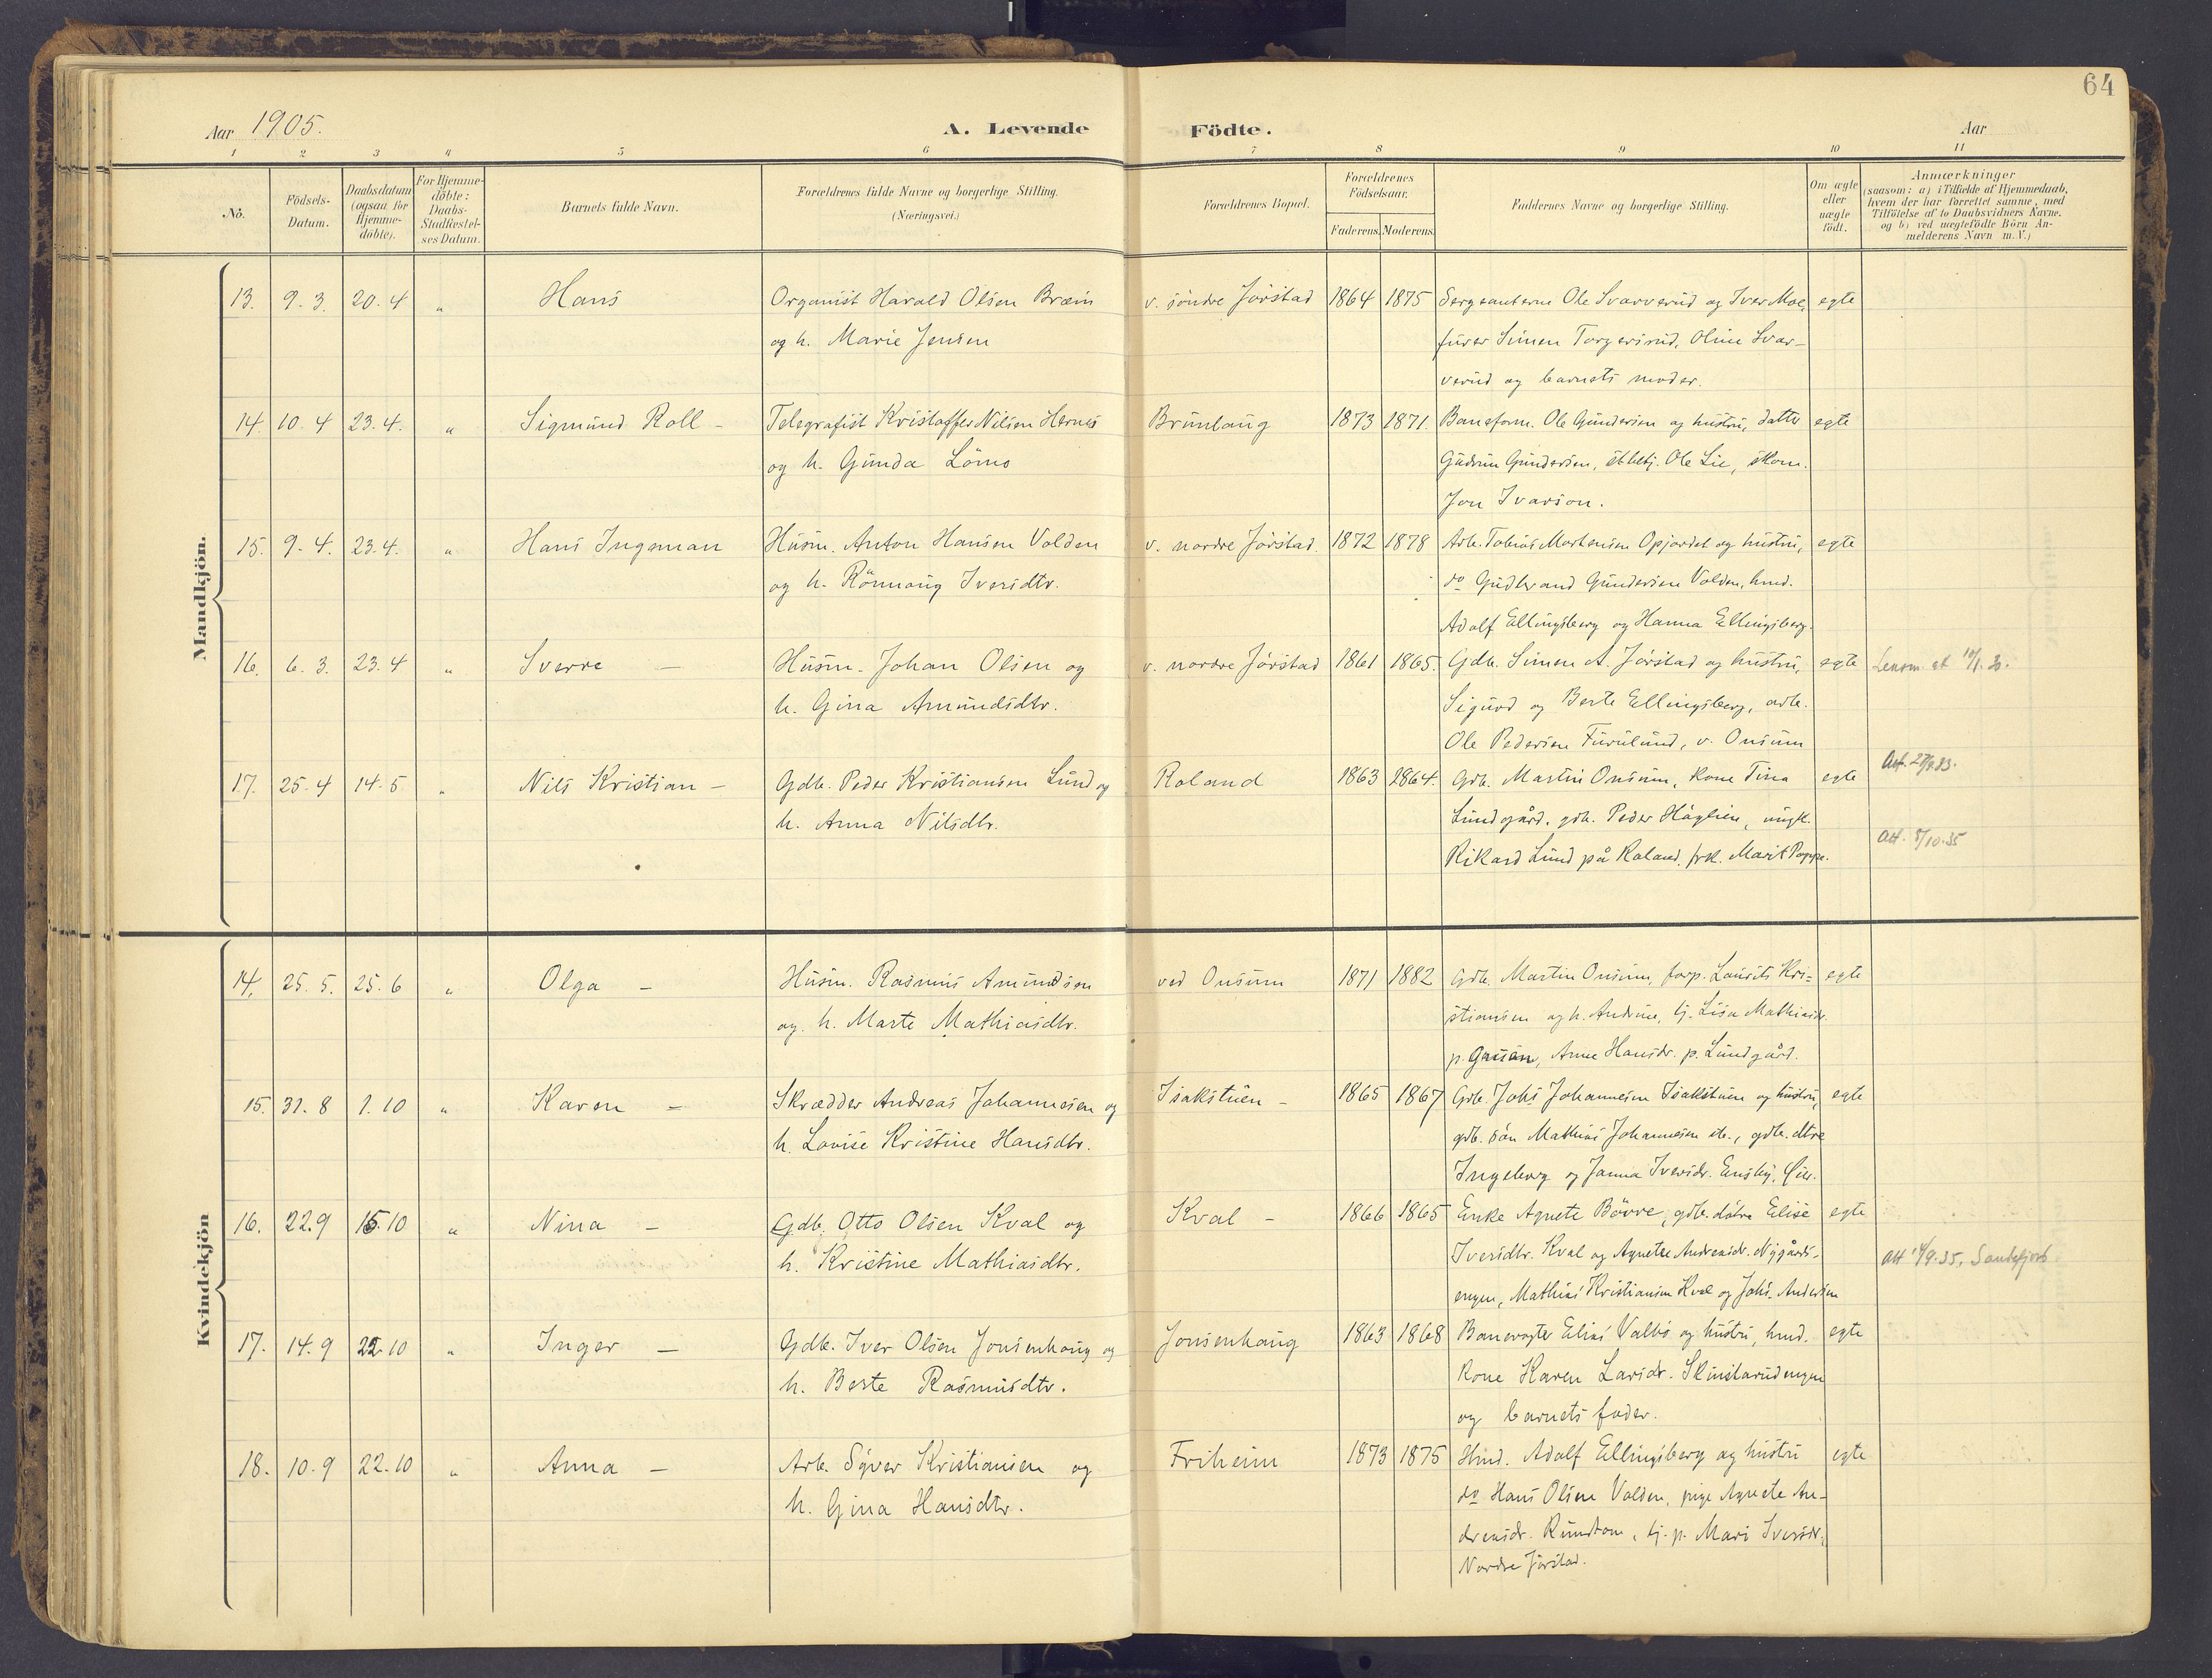 64
Aar 1905. A. Levende Födte. Aar
1 2 3 4 5 6 7 8 9 10 11
No.
Födsels-Datum.
Daabsdatum (ogsaa for Hjemmedöbte).
For Hjemmedöbte: Daabs-Stadfæstelses Datum.
Barnets fulde Navn.
Forældrenes fulde Navne og borgerlige Stilling. (Næringsvei.)
Forældrenes Bopæl.
Forældrenes Födselsaar.
Faderens. Moderens.
Faddernes Navne og borgerlige Stilling.
Om ægte eller uægte födt.
Anmærkninger
(saasom: a) i Tilfælde af Hjemmedaab,
hvem der har forrettet samme, med
Tilföielse af to Daabsvidners Navne.
og b) ved uægtefödte Börn Anmelderens Navn m.V.)
Mandkjön.
13. 9. 3. 20. 4 „ Hans Organist Harald Olsen Bræin v. söndre Jörstad 1864 1875 Sergeanterne Ole Svarverud og Iver Moe, egte
og h. Marie Jensen furer Simen Torgersrud, Oline Svar-
verud og barnets moder.
14. 10. 4 23. 4. „ Sigmund Roll - Telegrafist Kristoffer Nilsen Hernes Brunlaug 1873 1871. Baneform. Ole Gundersen og hustru, datter egte
og h. Gunda Lömo Gudrun Gundersen, Ole Lie, skom.
Jon Ivarson.
15. 9. 4. 23. 4. „ Hans Ingeman Husm. Anton Hansen Volden v. nordre Jörstad. 1872 1878 Arb. Tobias Mortensen Opjordet og hustru, egte
og h. Rönnaug Iversdtr. do Gudbrand Gundersen Volden, hmd.
Adolf Ellingsberg og Hanna Ellingsberg.
16. 6. 3. 23. 4 „ Sverre - Husm. Johan Olsen og v. nordre Jörstad 1861 1865. Gdb. Simen A. Jörstad og hustru, egte
h. Gina Amundsdtr. Sigurd og Berte Ellingsberg, arb.
Ole Pedersen Furulund, v. Onsum
17. 25. 4 14. 5 „ Nils Kristian - Gdb. Peder Kristiansen Lund og Roland 1863 1864. Gdb. Martin Onsum, kone Tina egte
h. Anna Nilsdtr. Lundgård, gdb. Peder Håglien, ungk.
Att. 8/10.35
Rikard Lund på Roland, frk. Marit Poppe.
Kvindekjön
14. 25. 5. 25. 6 „ Olga - Husm. Rasmus Amundsen ved Onsum 1871 1882 Gdb. Martin Onsum, forp. Laurits Kri- egte
og h. Marte Mathiasdtr. stiansen og h. Andrine, tj. Lisa Mathiasdr.
p. Anne Hansdr. p. Lundgård.
15. 31. 8 1. 10 „ Karen - Skrædder Andreas Johannesen og Isakstuen - 1865 1867 Gdb. Johs Johannesen Isakstuen og hustru, egte
h. Lovise Kristine Hansdtr. gdb. sön Mathias Johannesen gdb. dtre
Ingeborg og Janna Iversdr. Ensby,
16. 22. 9 15. 10 „ Nina - Gdb. Otto Olsen Kval og Kval - 1866 1865 Enke Agnete Bövre, gdb. döttre Elise egte
h. Kristine Mathiasdtr. Iversdtr. Kval og Agnete Andreasdr. Nygårds-
Att 14/9.35, Sandefjord
engen, Mathias Kristiansen Kval og Johs. Andersen
17. 14. 9 22. 10 „ Inger - Gdb. Iver Olsen Jonsenhaug og Jonsenhaug 1863 1868 Banevogter Elias Valbö og hustru, hmd. egte
h. Berte Rasmusdtr. kone Karen Larsdr. Skinstarudengen
og barnets fader.
18. 10. 9 22. 10 „ Anna - Arb. Syver Kristiansen og Friheim 1873 1875 Hmd. Adolf Ellingsberg og hustru egte
h. Gina Hansdtr. do Hans Olsen Volden, pige Agnete An-
dreasdr. Rundtom, tj. p. Mari Iversdr.
Nordre Jörstad.